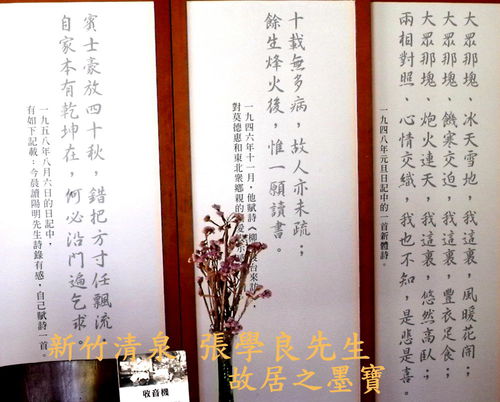 大眾那塊、冰天雪地，我這裏，風暖花開；
大眾那塊、饑寒交迫，我這裏，豐衣足食；
大眾那塊、炮火連天，我這裏，悠然高臥；
兩相對照、心情交織，我也不知，是悲是喜。
一九四八年元旦日記中的一首新體詩。
十載無多病，故人亦未疏；
餘生烽火後，惟一願讀書。
一九四六年十一月，他賦詩《柳 台來訪
對莫德惠和東北眾鄉親的 愛
賓士豪放四十秋，錯把方寸任飄流
自家本有乾坤在，何必沿門遍乞求。
一九五八年八月六日的日記中，
有如下記載：今晨讀陽明先生詩錄有感，自己賦詩一首。
收音機
新竹清泉 張學良先生
故居之墨寶